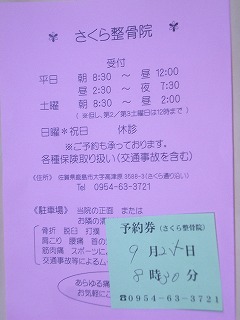 さくら整骨院
受付
平日 朝 8:30 ～ 昼 12:00
昼 2:30 ～ 夜 7:30
土曜 朝 8:30 ～ 昼 2:00
(※但し、第2／第3土曜日は12時まで)
日曜＊祝日 休診
※ご予約も承っております。
各種保険取り扱い(交通事故を含む)
《住所》 佐賀県鹿島市大字高津原 3588-3(さくら通り沿い)
Tel 0954-63-3721
《駐車場》 当院の正面 または
お隣の
骨折 脱臼 打撲
肩こり 腰痛 首の
筋肉痛 スポーツに
交通事故等によるム
あらゆる痛
お気軽にご
予約券(さくら整骨院)
9月2 日
8時30分
☎0954-63-3721